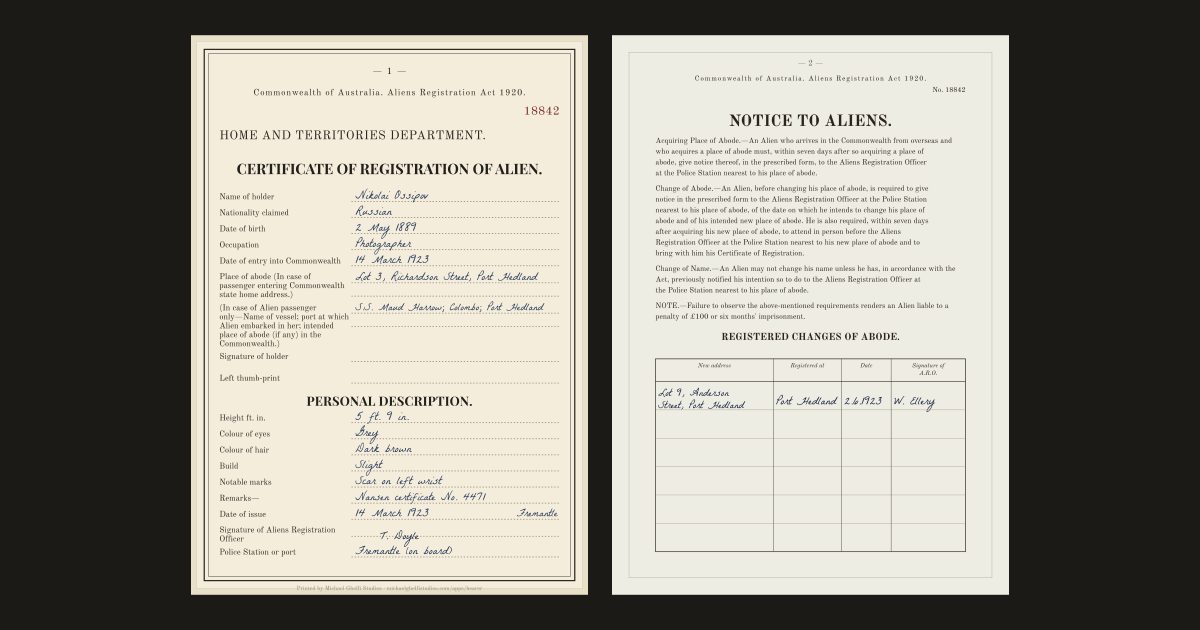 — 1 —
Commonwealth of Australia. Aliens Registration Act 1920.
18842
HOME AND TERRITORIES DEPARTMENT.
CERTIFICATE OF REGISTRATION OF ALIEN.
Name of holder Nikolai Ossipov
Nationality claimed Russian
Date of birth 2 May 1889
Occupation Photographer
Date of entry into Commonwealth 14 March 1923
Place of abode (In case of Lot 3, Richardson Street, Port Hedland
passenger entering Commonwealth
state home address.)
(In case of Alien passenger S.S. Maud Harrow; Colombo; Port Hedland
only—Name of vessel; port at which
Alien embarked in her; intended
place of abode (if any) in the
Commonwealth.)
Signature of holder
Left thumb-print
PERSONAL DESCRIPTION.
Height ft. in. 5 ft. 9 in.
Colour of eyes Grey
Colour of hair Dark brown
Build Slight
Notable marks Scar on left wrist
Remarks— Nansen certificate No. 4471
Date of issue 14 March 1923 Fremantle
Signature of Aliens Registration
Officer T. Doyle
Police Station or port Fremantle (on board)
Printed by Michael Ghelfi Studios · michaelghelfistudios.com/apps/bearer
— 2 —
Commonwealth of Australia. Aliens Registration Act 1920.
No. 18842
NOTICE TO ALIENS.
Acquiring Place of Abode.—An Alien who arrives in the Commonwealth from overseas and
who acquires a place of abode must, within seven days after so acquiring a place of
abode, give notice thereof, in the prescribed form, to the Aliens Registration Officer
at the Police Station nearest to his place of abode.
Change of Abode.—An Alien, before changing his place of abode, is required to give
notice in the prescribed form to the Aliens Registration Officer at the Police Station
nearest to his place of abode, of the date on which he intends to change his place of
abode and of his intended new place of abode. He is also required, within seven days
after acquiring his new place of abode, to attend in person before the Aliens
Registration Officer at the Police Station nearest to his new place of abode and to
bring with him his Certificate of Registration.
Change of Name.—An Alien may not change his name unless he has, in accordance with the
Act, previously notified his intention so to do to the Aliens Registration Officer at
the Police Station nearest to his place of abode.
NOTE.—Failure to observe the above-mentioned requirements renders an Alien liable to a
penalty of £100 or six months' imprisonment.
REGISTERED CHANGES OF ABODE.
New address Registered at Date Signature of
A.R.O.
Lot 9, Anderson
Street, Port Hedland Port Hedland 2.6.1923 W. Ellery